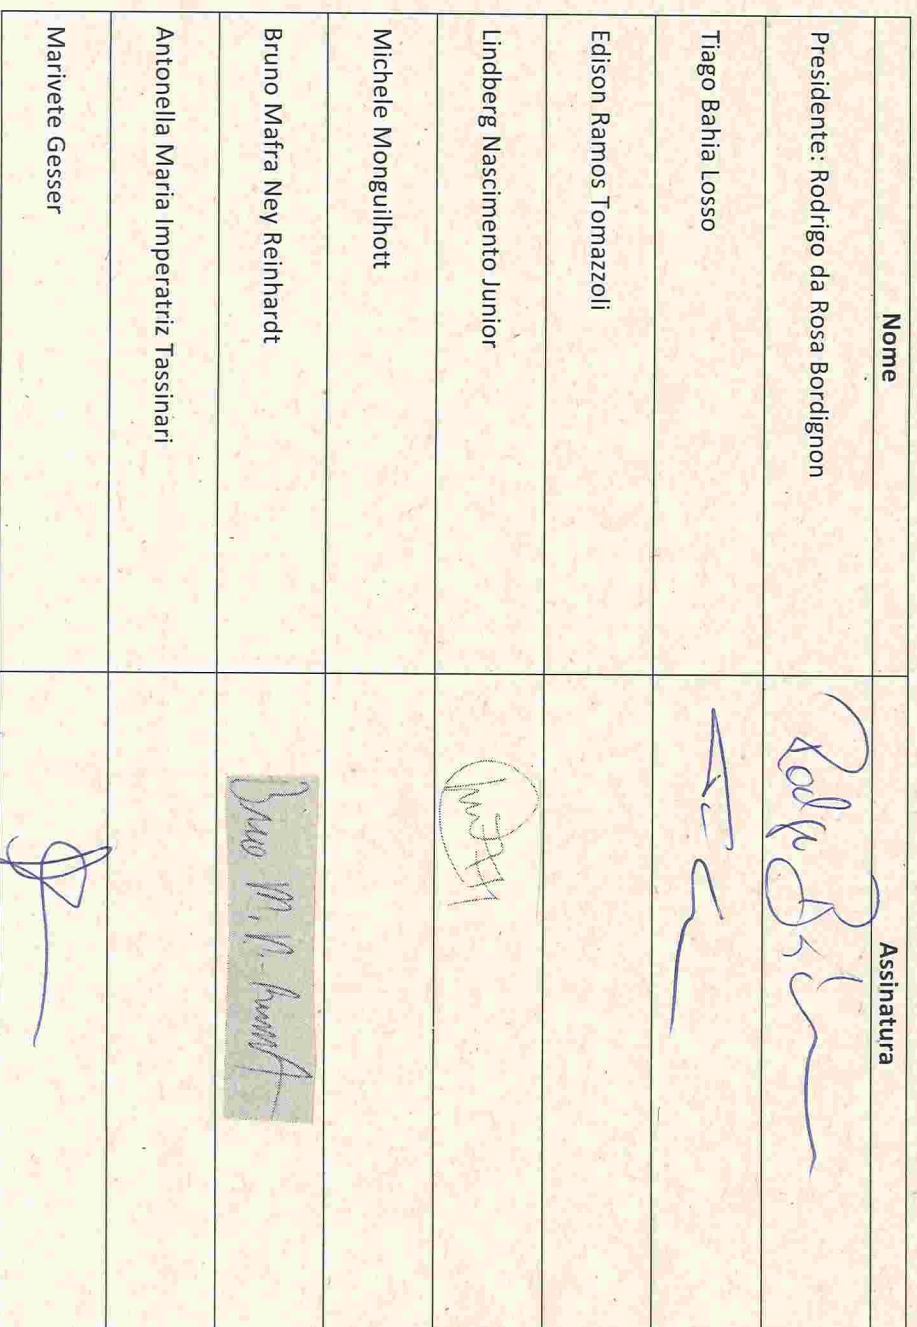 Nome Assinatura
Presidente: Rodrigo da Rosa Bordignon
Tiago Bahia Losso
Edison Ramos Tomazzoli
Lindberg Nascimento Junior
Michele Monguilhott
Bruno Mafra Ney Reinhardt Bruno M. N.
Antonella Maria Imperatriz Tassinari
Marivete Gesser